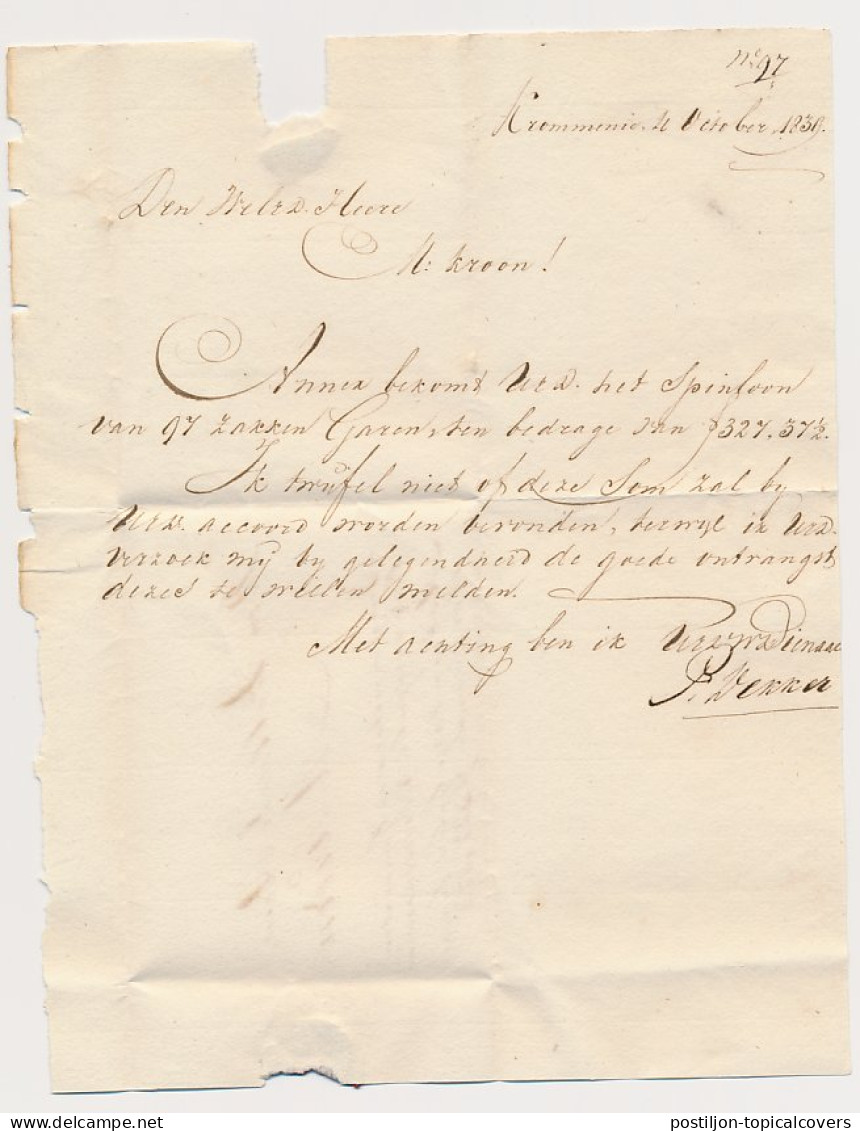 No 97
Krommenie, 4 October, 1839.
Den WelEd. Heere
M: Kroon!
Annex bekomt UEd. het Spinloon
van 97 zakken Garen, ten bedrage van ƒ327,37½.
Ik twijfel niet of deze Som zal by
UEd. accoord worden bevonden, terwyl ik UEd.
verzoek mij by gelegendheid de goede ontvangst
dezes te willen melden.
Met achting ben ik UEd Dienaar
P. Dekker
postiljon-topicalcovers